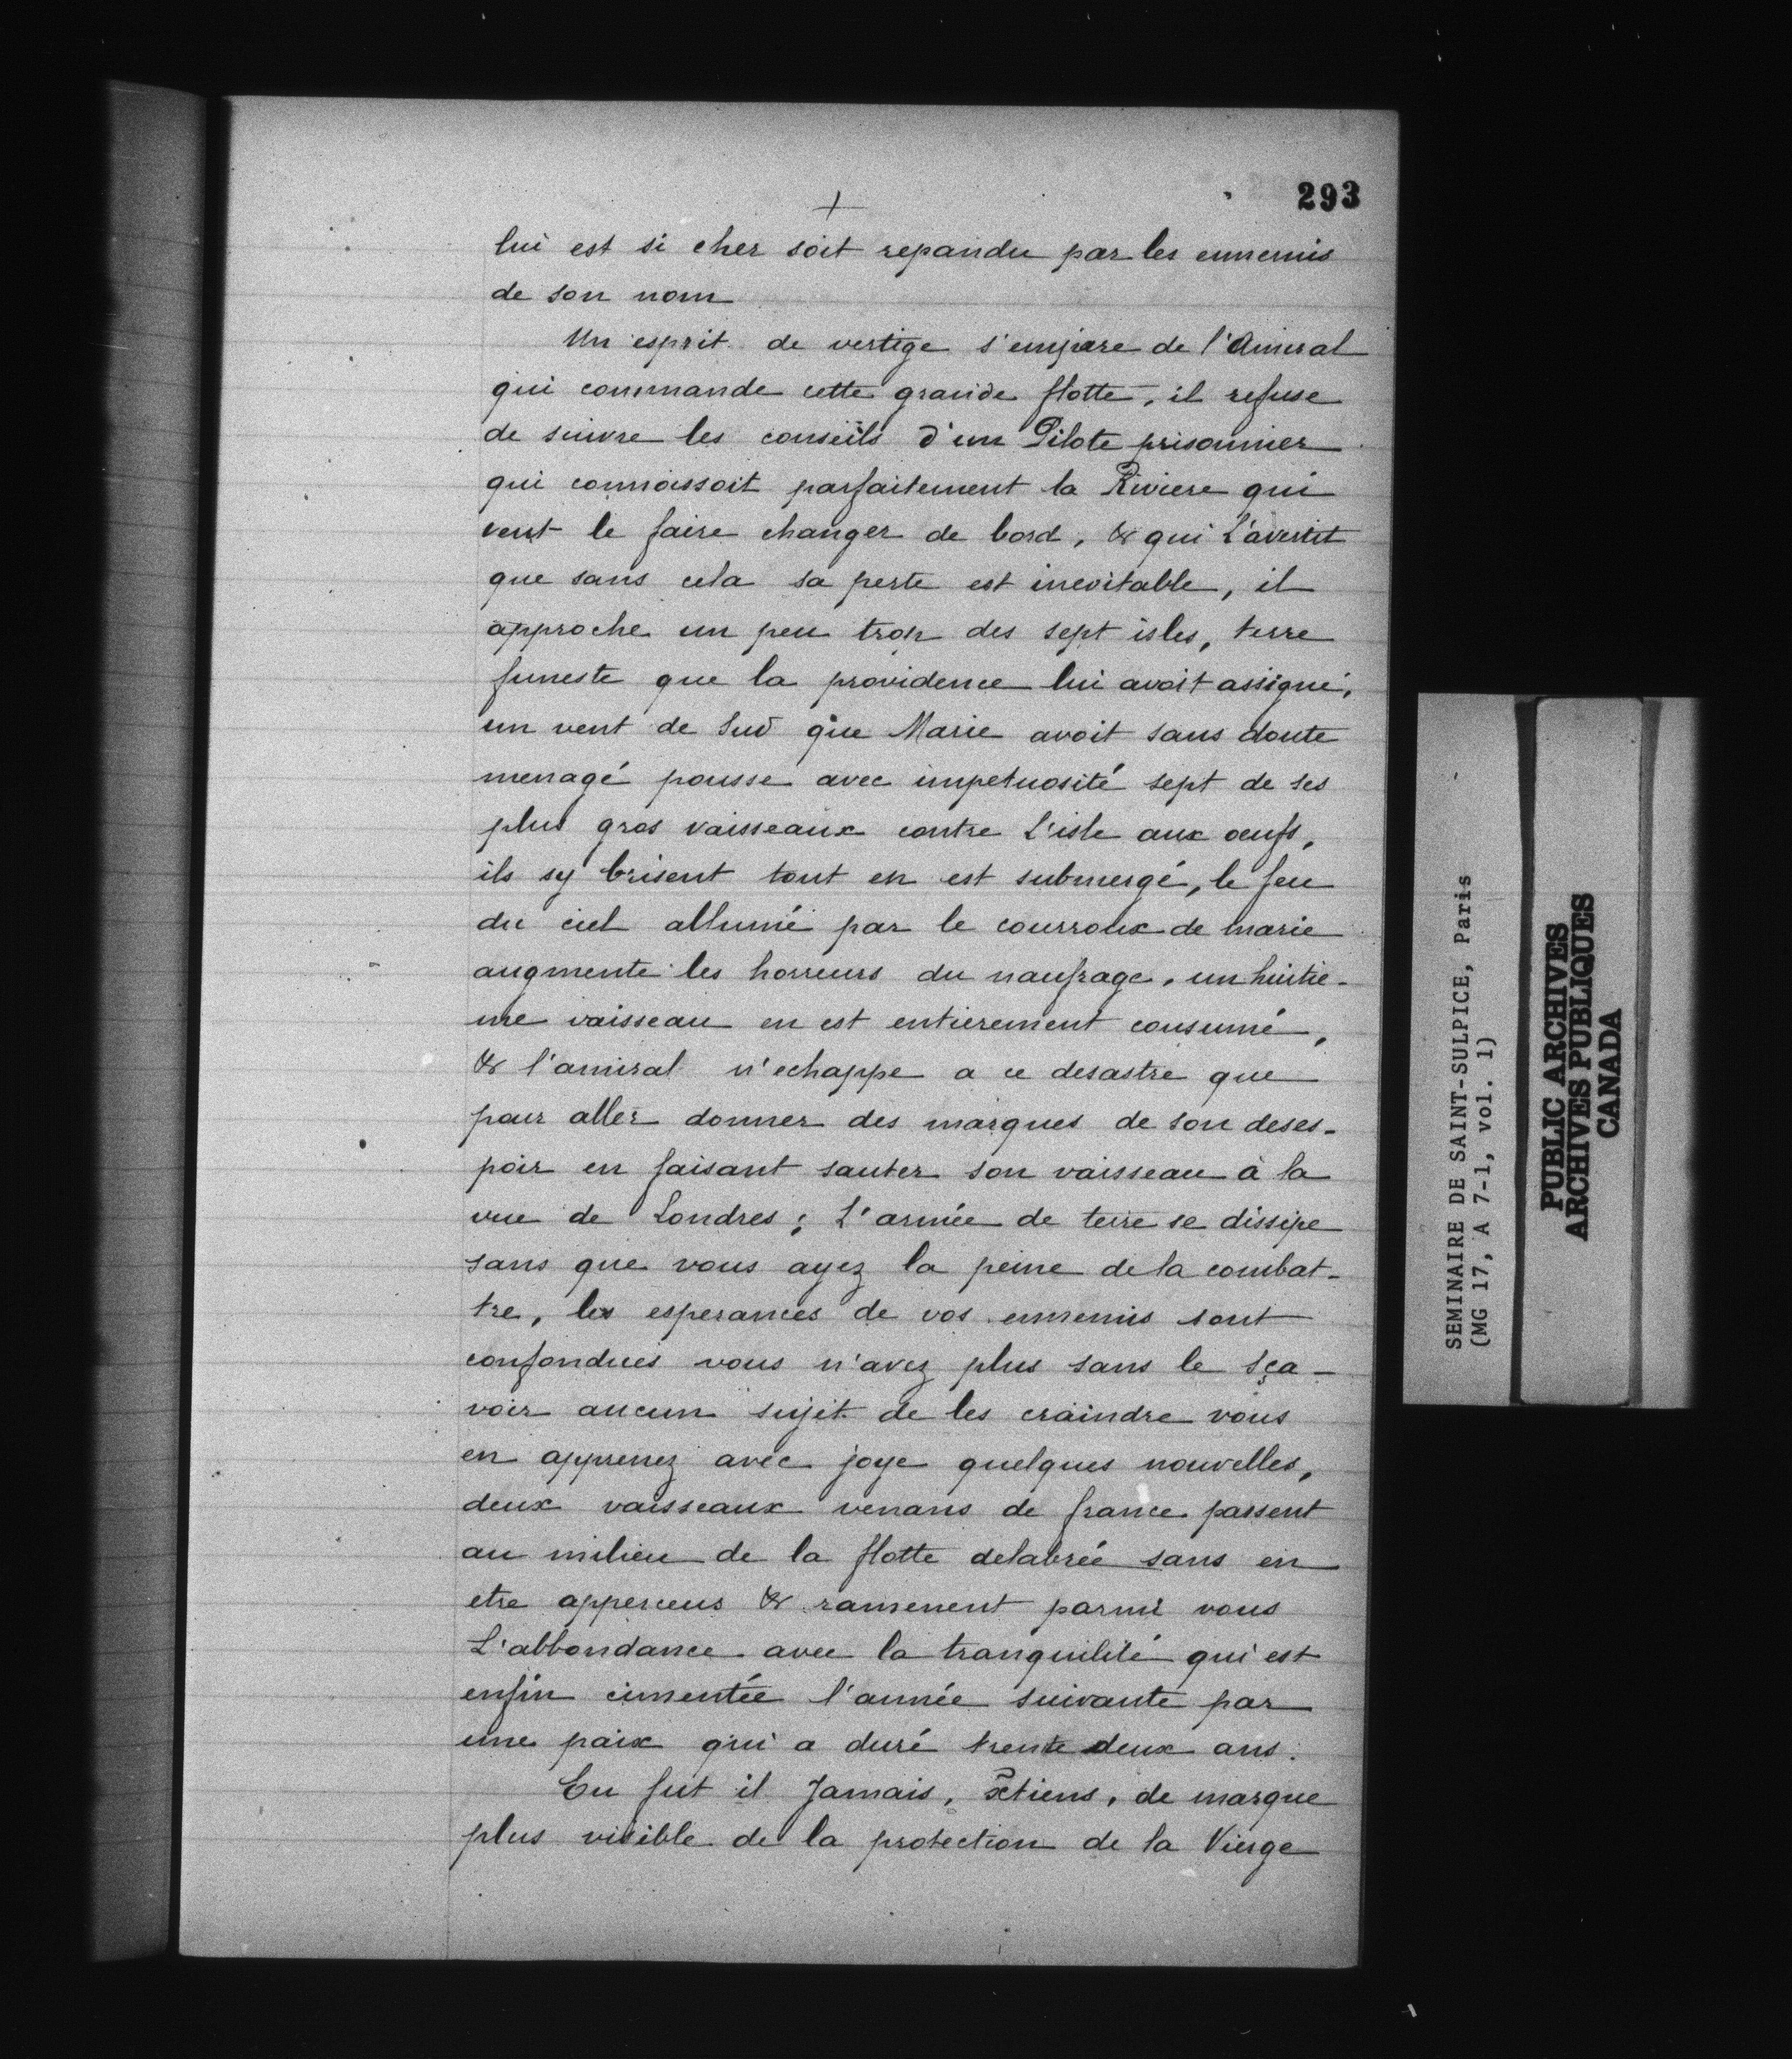 293
+
lui est si cher soit repandu par les ennemis
de son nom
Un esprit de vertige s'empare de l'Amiral
qui commande cette grande flotte, il refuse
de suivre les conseils d'un Pilote prisonnier
qui connoissoit parfaitement la Riviere qui
veut le faire changer de bord, & qui L'avertit
que sans cela sa perte est inevitable, il
approche un peu trop des sept isles, terre
funeste que la providence lui avoit assigné,
un vent de Sud que Marie avoit sans doute
menagé pousse avec impetuosité sept de ses
plus gros vaisseaux contre L'isle aux oeufs,
ils sy brisent tout en est submergé, le feu
du ciel allumé par le courroux de marie
augmente les horreurs du naufrage, un huitie-
me vaisseau en est entierement consumé,
& l'amiral n'echappe a ce desastre que
pour aller donner des marques de son deses-
poir en faisant sauter son vaisseau à la
vue de Londres; L'armée de terre se dissipe
sans que vous ayez la peine de la combat-
tre, les esperances de vos ennemis sont
confondues vous n'avez plus sans le sça-
voir aucun sujet de les craindre vous
en apprenez avec joye quelques nouvelles,
deux vaisseaux venans de france passent
au milieu de la flotte delabrée sans en
etre apperceus & ramenent parmi vous
L'abbondance avec la tranquilité qui est
enfin cimentée l'année suivante par
une paix qui a duré trente deux ans.
En fut il Jamais, xtiens, de marque
plus visible de la protection de la Vierge
SEMINAIRE DE SAINT-SULPICE, Paris
(MG 17, A 7-1, vol. 1)
PUBLIC ARCHIVES
ARCHIVES PUBLIQUES
CANADA